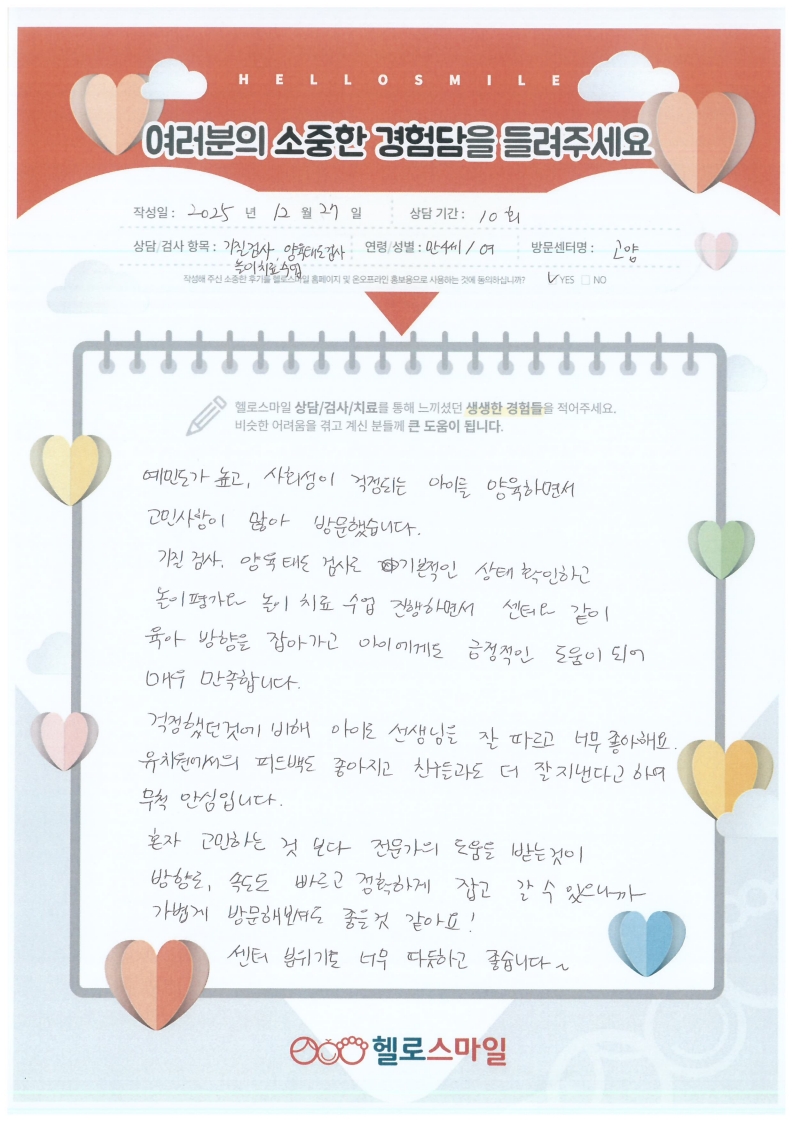 HELLOSMILE
여러분의 소중한 경험담을 들려주세요
작성일 : 2025 년 12 월 27 일 상담 기간 : 10회
상담/검사 항목 : 기질검사, 양육태도검사 연령/성별 : 만4세/여 방문센터명 : 고양
놀이치료수업
작성해 주신 소중한 후기를 헬로스마일 홈페이지 및 온오프라인 홍보용으로 사용하는 것에 동의하십니까? ✓YES □ NO
헬로스마일 상담/검사/치료를 통해 느끼셨던 생생한 경험들을 적어주세요.
비슷한 어려움을 겪고 계신 분들께 큰 도움이 됩니다.
예민도가 높고, 사회성이 걱정되는 아이를 양육하면서
고민사항이 많아 방문했습니다.
기질 검사, 양육 태도 검사로 기본적인 상태 확인하고
놀이평가와 놀이 치료 수업 진행하면서 센터와 같이
육아 방향을 잡아가고 아이에게도 긍정적인 도움이 되어
매우 만족합니다.
걱정했던것에 비해 아이도 선생님을 잘 따르고 너무 좋아해요.
유치원에서의 피드백도 좋아지고 친구들과도 더 잘지낸다고 하여
무척 안심입니다.
혼자 고민하는 것 보다 전문가의 도움을 받는것이
방향도, 속도도 빠르고 정확하게 잡고 갈 수 있으니까
가볍게 방문해보셔도 좋을것 같아요!
센터 분위기도 너무 따듯하고 좋습니다~
헬로스마일